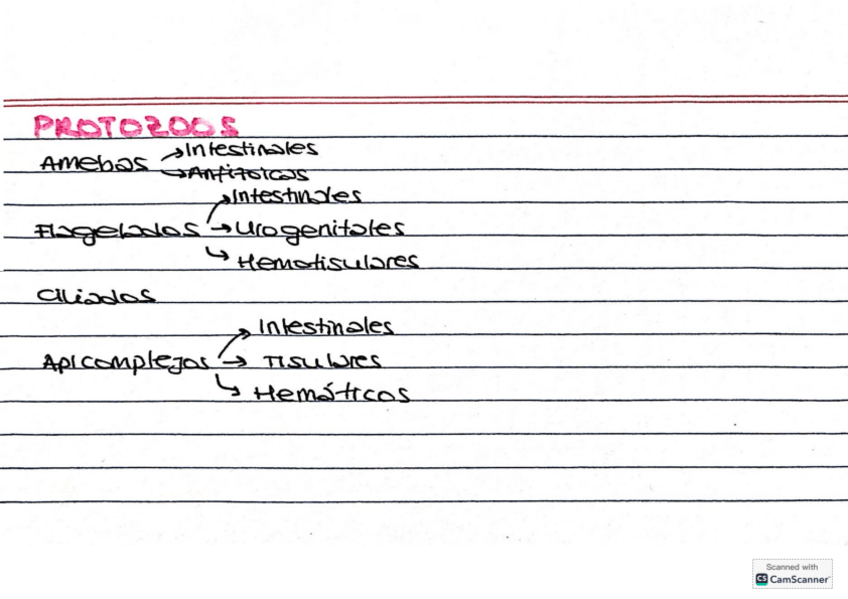 PROTOZOOS
Amebas → Intestinales
→ Anfizoicas
Flagelados → Intestinales
→ Urogenitales
→ Hematisulares
Ciliados
Apicomplejos → Intestinales
→ Tisulares
→ Hemáticos
Scanned with
CS CamScanner